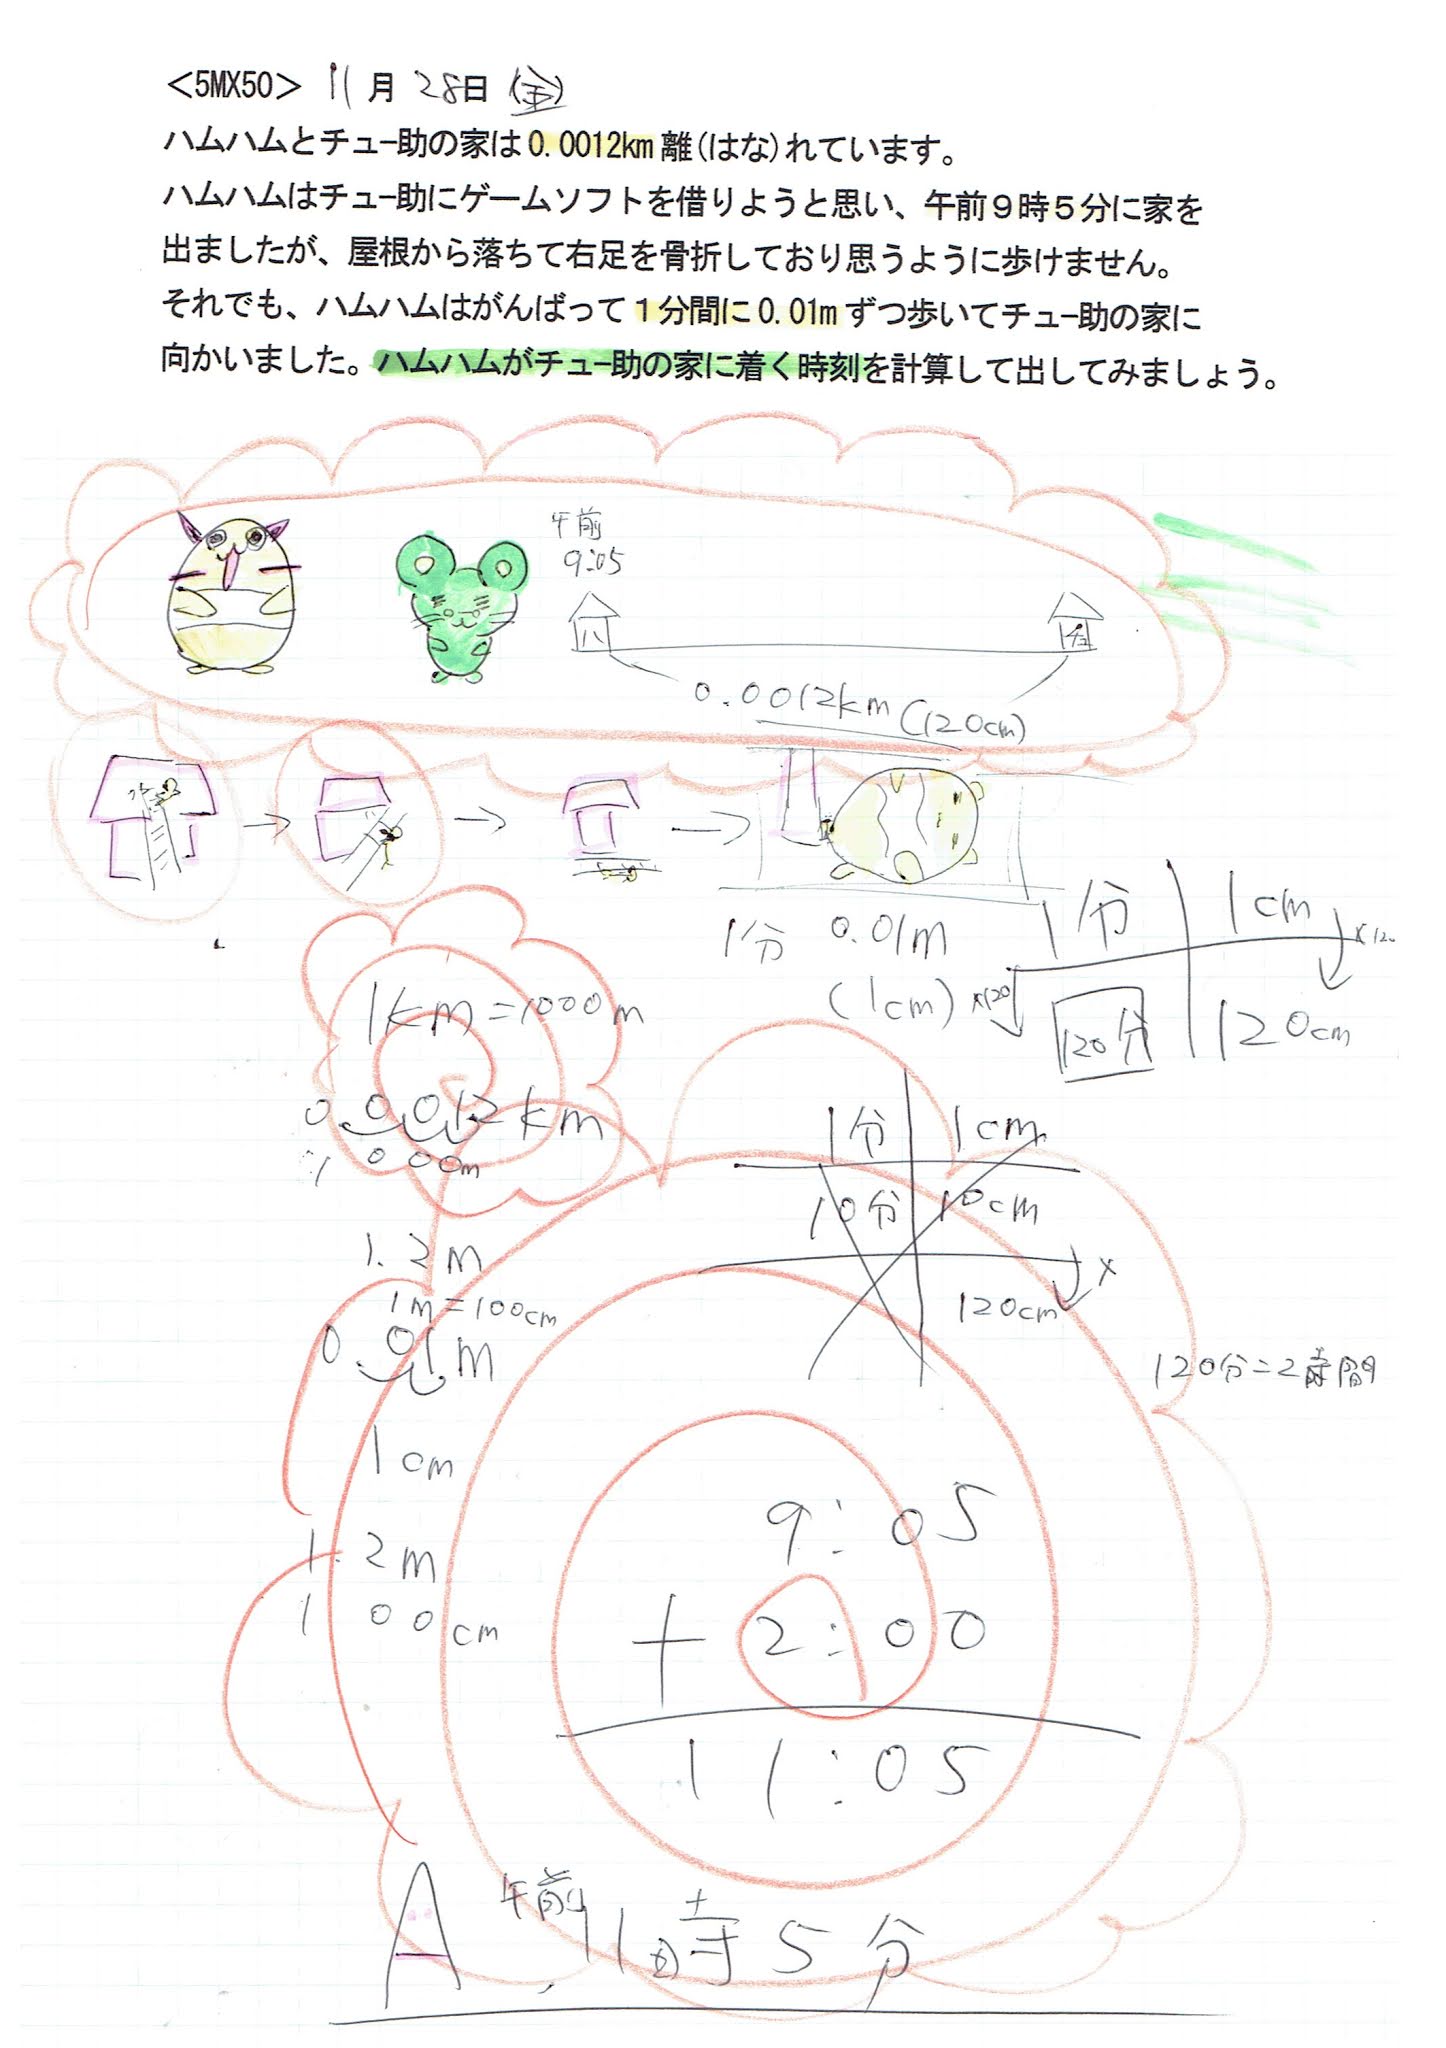 <5MX50> 11月 28日 (金)
ハムハムとチュー助の家は0.0012km離(はな)れています。
ハムハムはチュー助にゲームソフトを借りようと思い、午前9時5分に家を
出ましたが、屋根から落ちて右足を骨折しており思うように歩けません。
それでも、ハムハムはがんばって1分間に0.01mずつ歩いてチュー助の家に
向かいました。ハムハムがチュー助の家に着く時刻を計算して出してみましょう。
午前
9:05
ハ
チュ
0.0012km (120cm)
1分 0.01m
(1cm)
1分 1cm
×120
×120
120分 120cm
1km=1000m
0 0012km
1 000m
1.2m
1m=100cm
0 01m
1cm
1.2m
1 00cm
1分 1cm
10分 10cm
×
120cm
120分=2時間
9:05
+ 2:00
11:05
A 午前11時5分